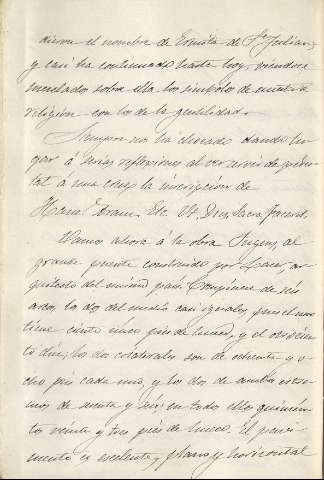 dieron el nombre de Ermita de Sn. Julian,
y casi ha continuado hasta hoy, viendose
mezclados sobre ella los simbolos de nuestra
religión con los de la gentilidad.
Siempre nos ha chocado dando lu
gar á serias reflexiones al ver servir de pedes
tal á una cruz la inscripcion de
Hanc. Aram. Etc. Ut. Deis. Sacra faceret.
Vamos ahora á la obra insigne, al
grande puente construido por Lacer, ar
quitecto del mismo pais. Compónese de seis
arcos, los dos del medio casi iguales, pues el uno
tiene ciento once pies de luz, y el otro cien
to diez; los dos colaterales son de ochenta y o
cho pies cada uno, y los dos de ambos estre
mos de sesenta y seis; en todo ello quinien
tos veinte y tres pies de hueco. El pavi
mento es excelente, plano y horizontal